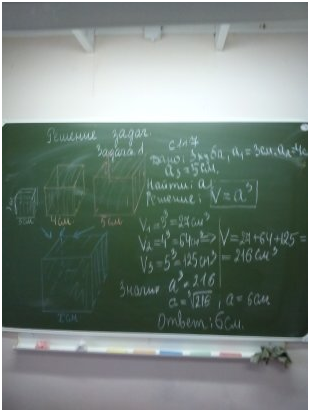 Решение задач.
Задача 1
Дано: 3 куба, a₁ = 3см, a₂ = 4см
a₃ = 5см.
Найти: a
Решение: V = a³
3см 4см 5см
V₁ = 3³ = 27см³
V₂ = 4³ = 64см³ => V = 27 + 64 + 125 =
V₃ = 5³ = 125см³ = 216см³
Значит a³ = 216
a = ∛216, a = 6см
Ответ: 6см.